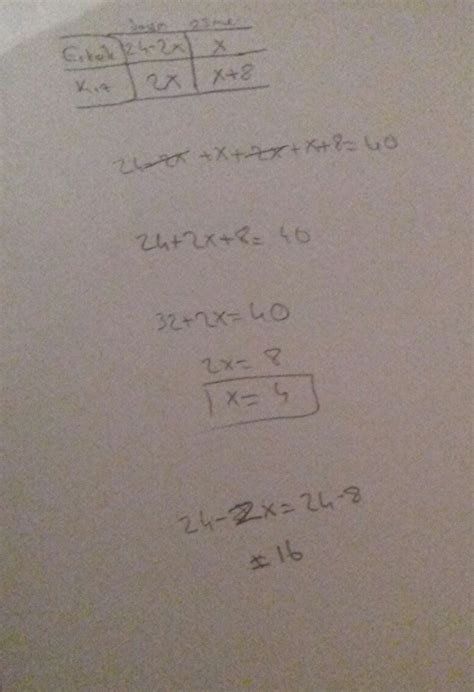 Erkek 24-2x x
Kız 2x x+8
24-2x+x+2x+x+8=40
24+2x+8=40
32+2x=40
2x=8
x=4
24-2x=24-8
=16